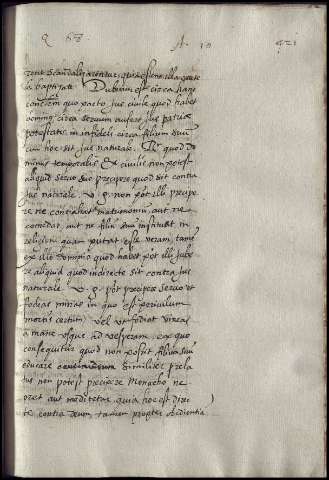 Q 68. A. 10 421
rent scandaliza
la baptizati Dubium est circa hanc
quo pacto jus civile quod habet
circa servum aufere jus patriae
potestatis in infideli circa filium suum
cum hoc sit jus naturale. quod do
minus temporalis & civilis non potest
aliquid servo suo precipere quod sit contra
jus naturale. v. g. non pot illi precipe
re ne contrahat matrimonium, aut ne
comedat, aut ne filium suum instituat in
religione quam putat esse veram, tamen
ex illo dominio quod habet pot illi jube
re aliquid quod indirecte sit contra jus
naturale. v. g. pot precipere servo ut
fodias minas in quo est periculum
mortis certum vel ut fodiat vineas
a mane usque ad vesperam. ex quo
consequitur quod non possit filium suum
educare Similiter prela
tus non potest precipere Monacho ne
oret aut meditetur, quia hoc est direc
te contra deum, tamen propter obedientia